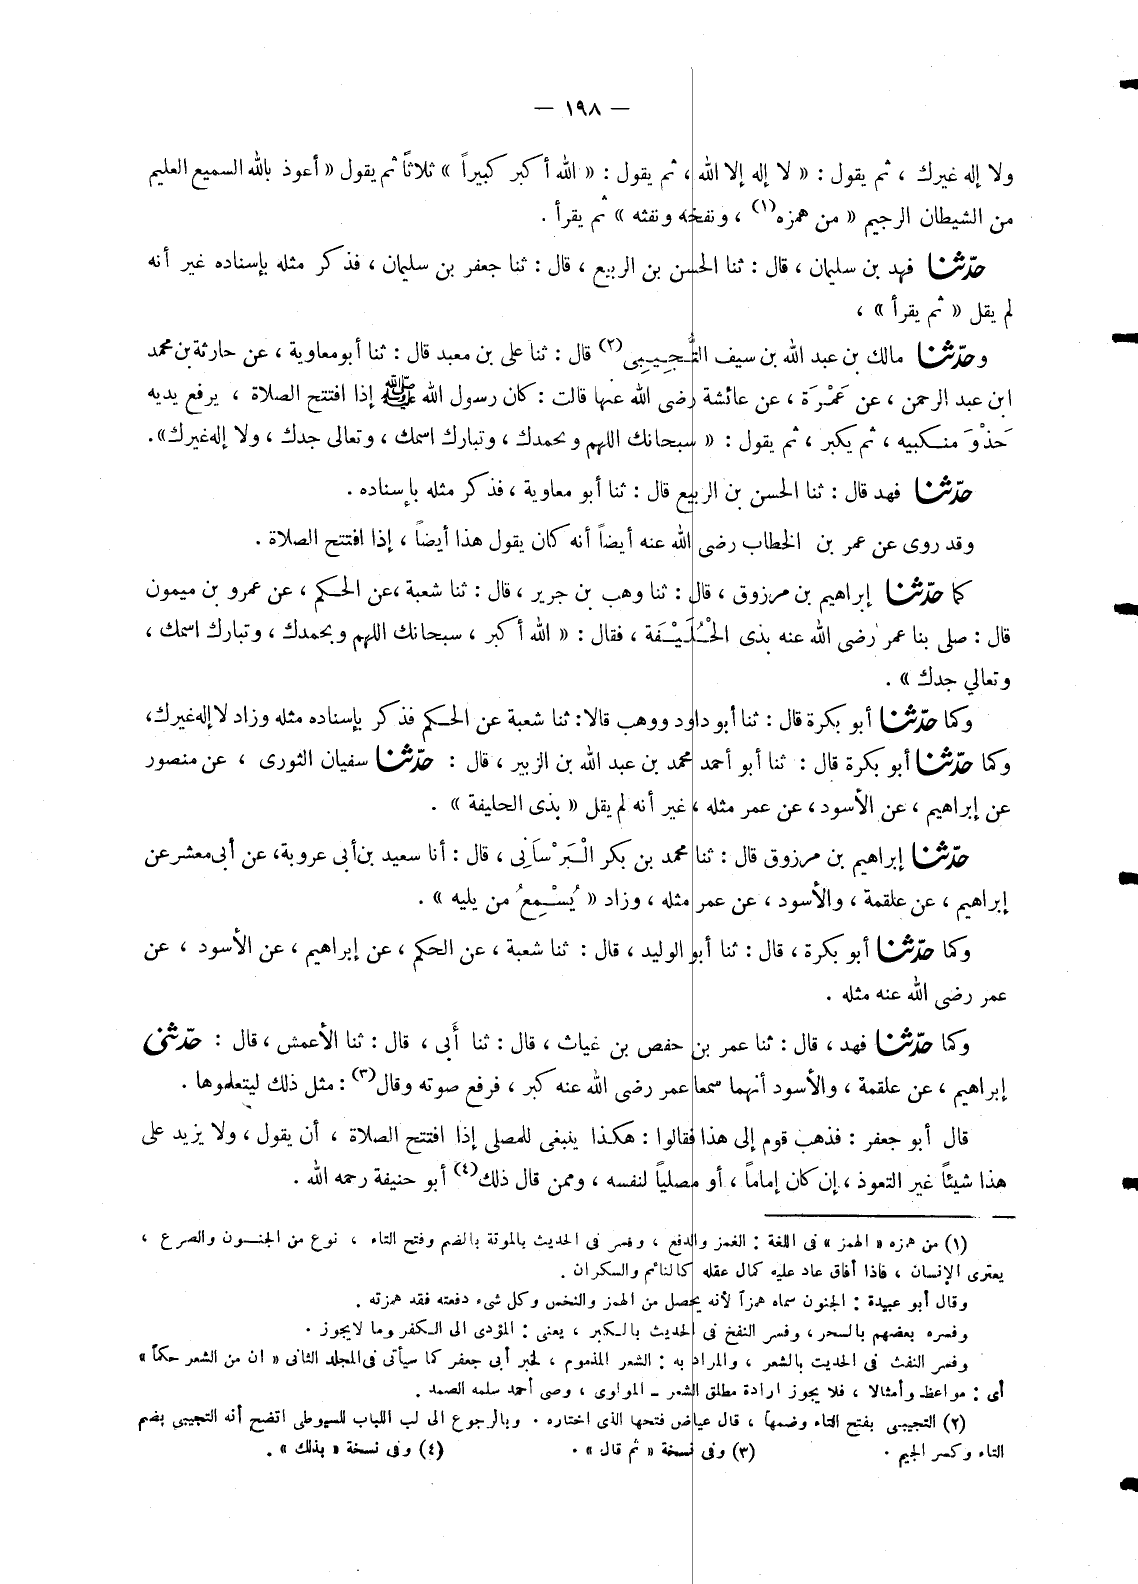 — ١٩٨ —
ولا إله غيرك ، ثم يقول : « لا إله إلا الله ، ثم يقول : « الله أكبر كبيراً » ثلاثاً ثم يقول « أعوذ بالله السميع العليم
من الشيطان الرجيم « من همزه(١) ، ونفخه ونفثه » ثم يقرأ .
حدّثنا فهد بن سليمان ، قال : ثنا الحسن بن الربيع ، قال : ثنا جعفر بن سليمان ، فذكر مثله بإسناده غير أنه
لم يقل « ثم يقرأ » ،
وحدّثنا مالك بن عبد الله بن سيف التُّجِيبِى(٢) قال : ثنا على بن معبد قال : ثنا أبو معاوية ، عن حارثة بن محمد
ابن عبد الرحمن ، عن عَمْرَة ، عن عائشة رضى الله عنها قالت : كان رسول الله ﷺ إذا افتتح الصلاة ، يرفع يديه
حَذْوَ منكبيه ، ثم يكبر ، ثم يقول : « سبحانك اللهم وبحمدك ، وتبارك اسمك ، وتعالى جدك ، ولا إله غيرك» .
حدّثنا فهد قال : ثنا الحسن بن الربيع قال : ثنا أبو معاوية ، فذكر مثله بإسناده .
وقد روى عن عمر بن الخطاب رضى الله عنه أيضاً أنه كان يقول هذا أيضاً ، إذا افتتح الصلاة .
كما حدّثنا إبراهيم بن مرزوق ، قال : ثنا وهب بن جرير ، قال : ثنا شعبة ، عن الحكم ، عن عمرو بن ميمون
قال : صلى بنا عمر رضى الله عنه بذى الْحُلَيْفَة ، فقال : « الله أكبر ، سبحانك اللهم وبحمدك ، وتبارك اسمك ،
وتعالي جدك » .
وكما حدّثنا أبو بكرة قال : ثنا أبو داود ووهب قالا : ثنا شعبة عن الحكم فذكر بإسناده مثله وزاد لا إله غيرك ،
وكما حدّثنا أبو بكرة قال : ثنا أبو أحمد محمد بن عبد الله بن الزبير ، قال : حدّثنا سفيان الثورى ، عن منصور
عن إبراهيم ، عن الأسود ، عن عمر مثله ، غير أنه لم يقل « بذى الحليفة » .
حدّثنا إبراهيم بن مرزوق قال : ثنا محمد بن بكر الْبَرْسَانِى ، قال : أنا سعيد بن أبى عروبة ، عن أبى معشر عن
إبراهيم ، عن علقمة ، والأسود ، عن عمر مثله ، وزاد « يُسْمِعُ من يليه » .
وكما حدّثنا أبو بكرة ، قال : ثنا أبو الوليد ، قال : ثنا شعبة ، عن الحكم ، عن إبراهيم ، عن الأسود ، عن
عمر رضى الله عنه مثله .
وكما حدّثنا فهد ، قال : ثنا عمر بن حفص بن غياث ، قال : ثنا أَبى ، قال : ثنا الأعمش ، قال : حدّثنى
إبراهيم ، عن علقمة ، والأسود أنهما سمعا عمر رضى الله عنه كبر ، فرفع صوته وقال(٣) : مثل ذلك ليتعلموها .
قال أبو جعفر : فذهب قوم إلى هذا فقالوا : هكذا ينبغى للمصلى إذا افتتح الصلاة ، أن يقول ، ولا يزيد على
هذا شيئاً غير التعوذ ، إن كان إماماً ، أو مصلياً لنفسه ، وممن قال ذلك(٤) أبو حنيفة رحمه الله .
(١) من همزه « الهمز » فى اللغة : الغمز والدفع ، وفسر فى الحديث بالموتة بالضم وفتح التاء ، نوع من الجنون والصرع ،
يعترى الإنسان ، فاذا أفاق عاد عليه كمال عقله كالنائم والسكران .
وقال أبو عبيدة : الجنون سماه همزاً لأنه يحصل من الهمز والنخس وكل شىء دفعته فقد همزته .
وفسره بعضهم بالسحر ، وفسر النفخ فى الحديث بالكبر ، يعنى : المؤدى الى الكفر وما لايجوز .
وفسر النفث فى الحديث بالشعر ، والمراد به : الشعر المذموم ، لخبر أبى جعفر كما سيأتى فى المجلد الثانى « ان من الشعر حكماً »
أى : مواعظ وأمثالا ، فلا يجوز ارادة مطلق الشعر ـ المولوى ، وصى أحمد سلمه الصمد .
(٢) التجيبى بفتح التاء وضمها ، قال عياض فتحها الذى اختاره . وبالرجوع الى لب اللباب للسيوطى اتضح أنه التجيبى بضم
التاء وكسر الجيم . (٣) وفى نسخة « ثم قال » . (٤) وفى نسخة « بذلك » .